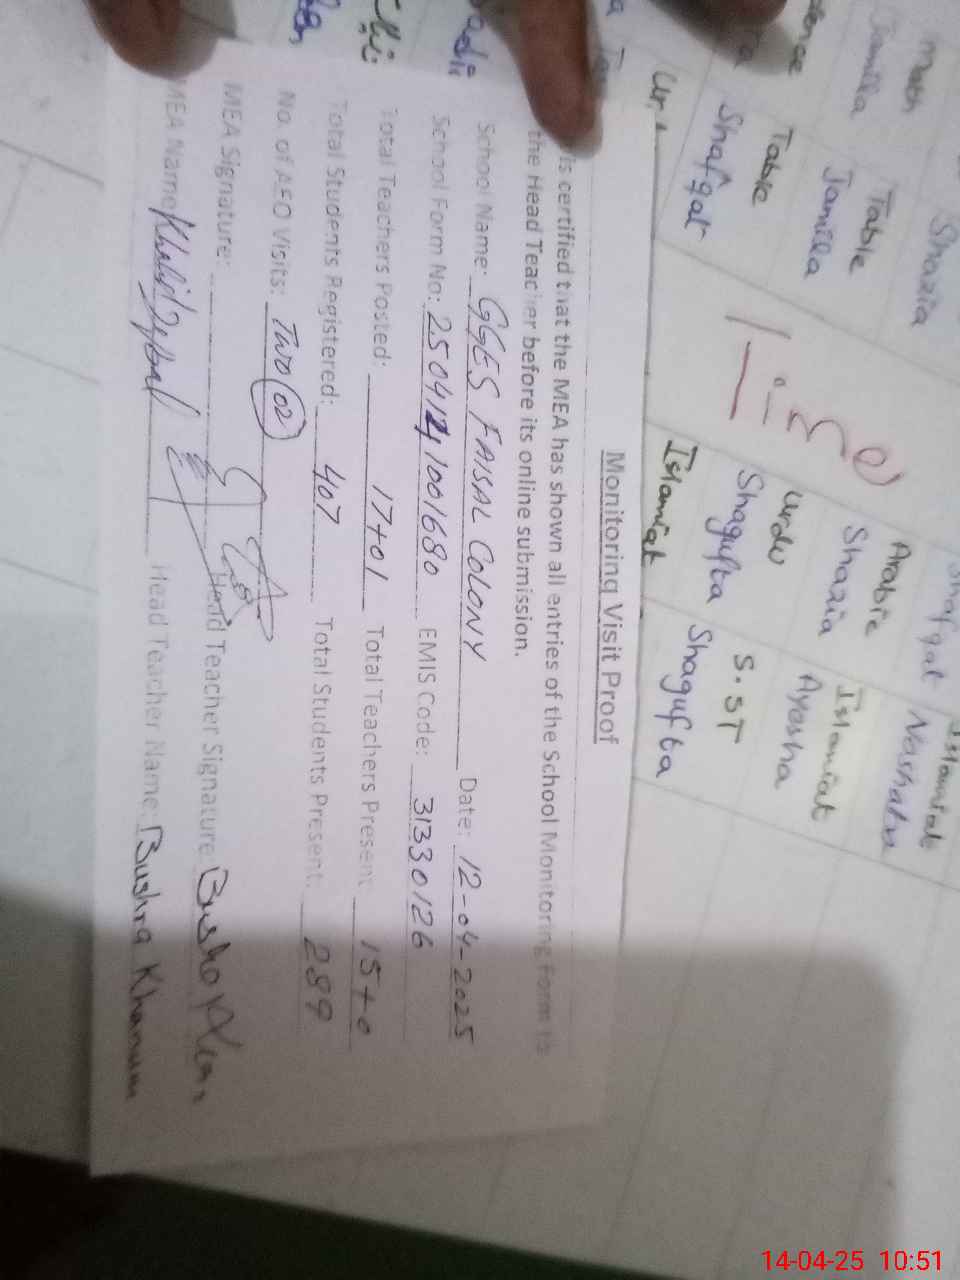 Monitoring Visit Proof
is certified that the MEA has shown all entries of the School Monitoring Form to
the Head Teacher before its online submission.
School Name: GGES FAISAL COLONY Date: 12-04-2025
School Form No: 2504141001680 EMIS Code: 31330126
Total Teachers Posted: 17+01 Total Teachers Present 15+0
Total Students Registered: 407 Total Students Present: 289
No. of AEO Visits: Two (02)
MEA Signature: Head Teacher Signature:
MEA Name Khalid Iqbal Head Teacher Name: Bushra Khanum
Math Shazia
Jamila Table Arabic Islamiat
Jamila Shazia Nashatu
Table Urdu Islamiat
Shafqat Shagufta Ayesha
Islamiat S.ST
Shagufta
Shafqat
14-04-25 10:51